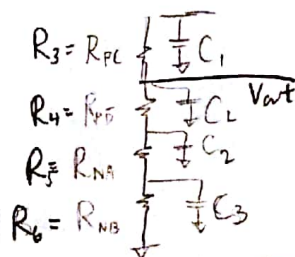 R3 = RPC C1
Vout
R4 = RPD CL
R5 = RNA C2
R6 = RNB C3